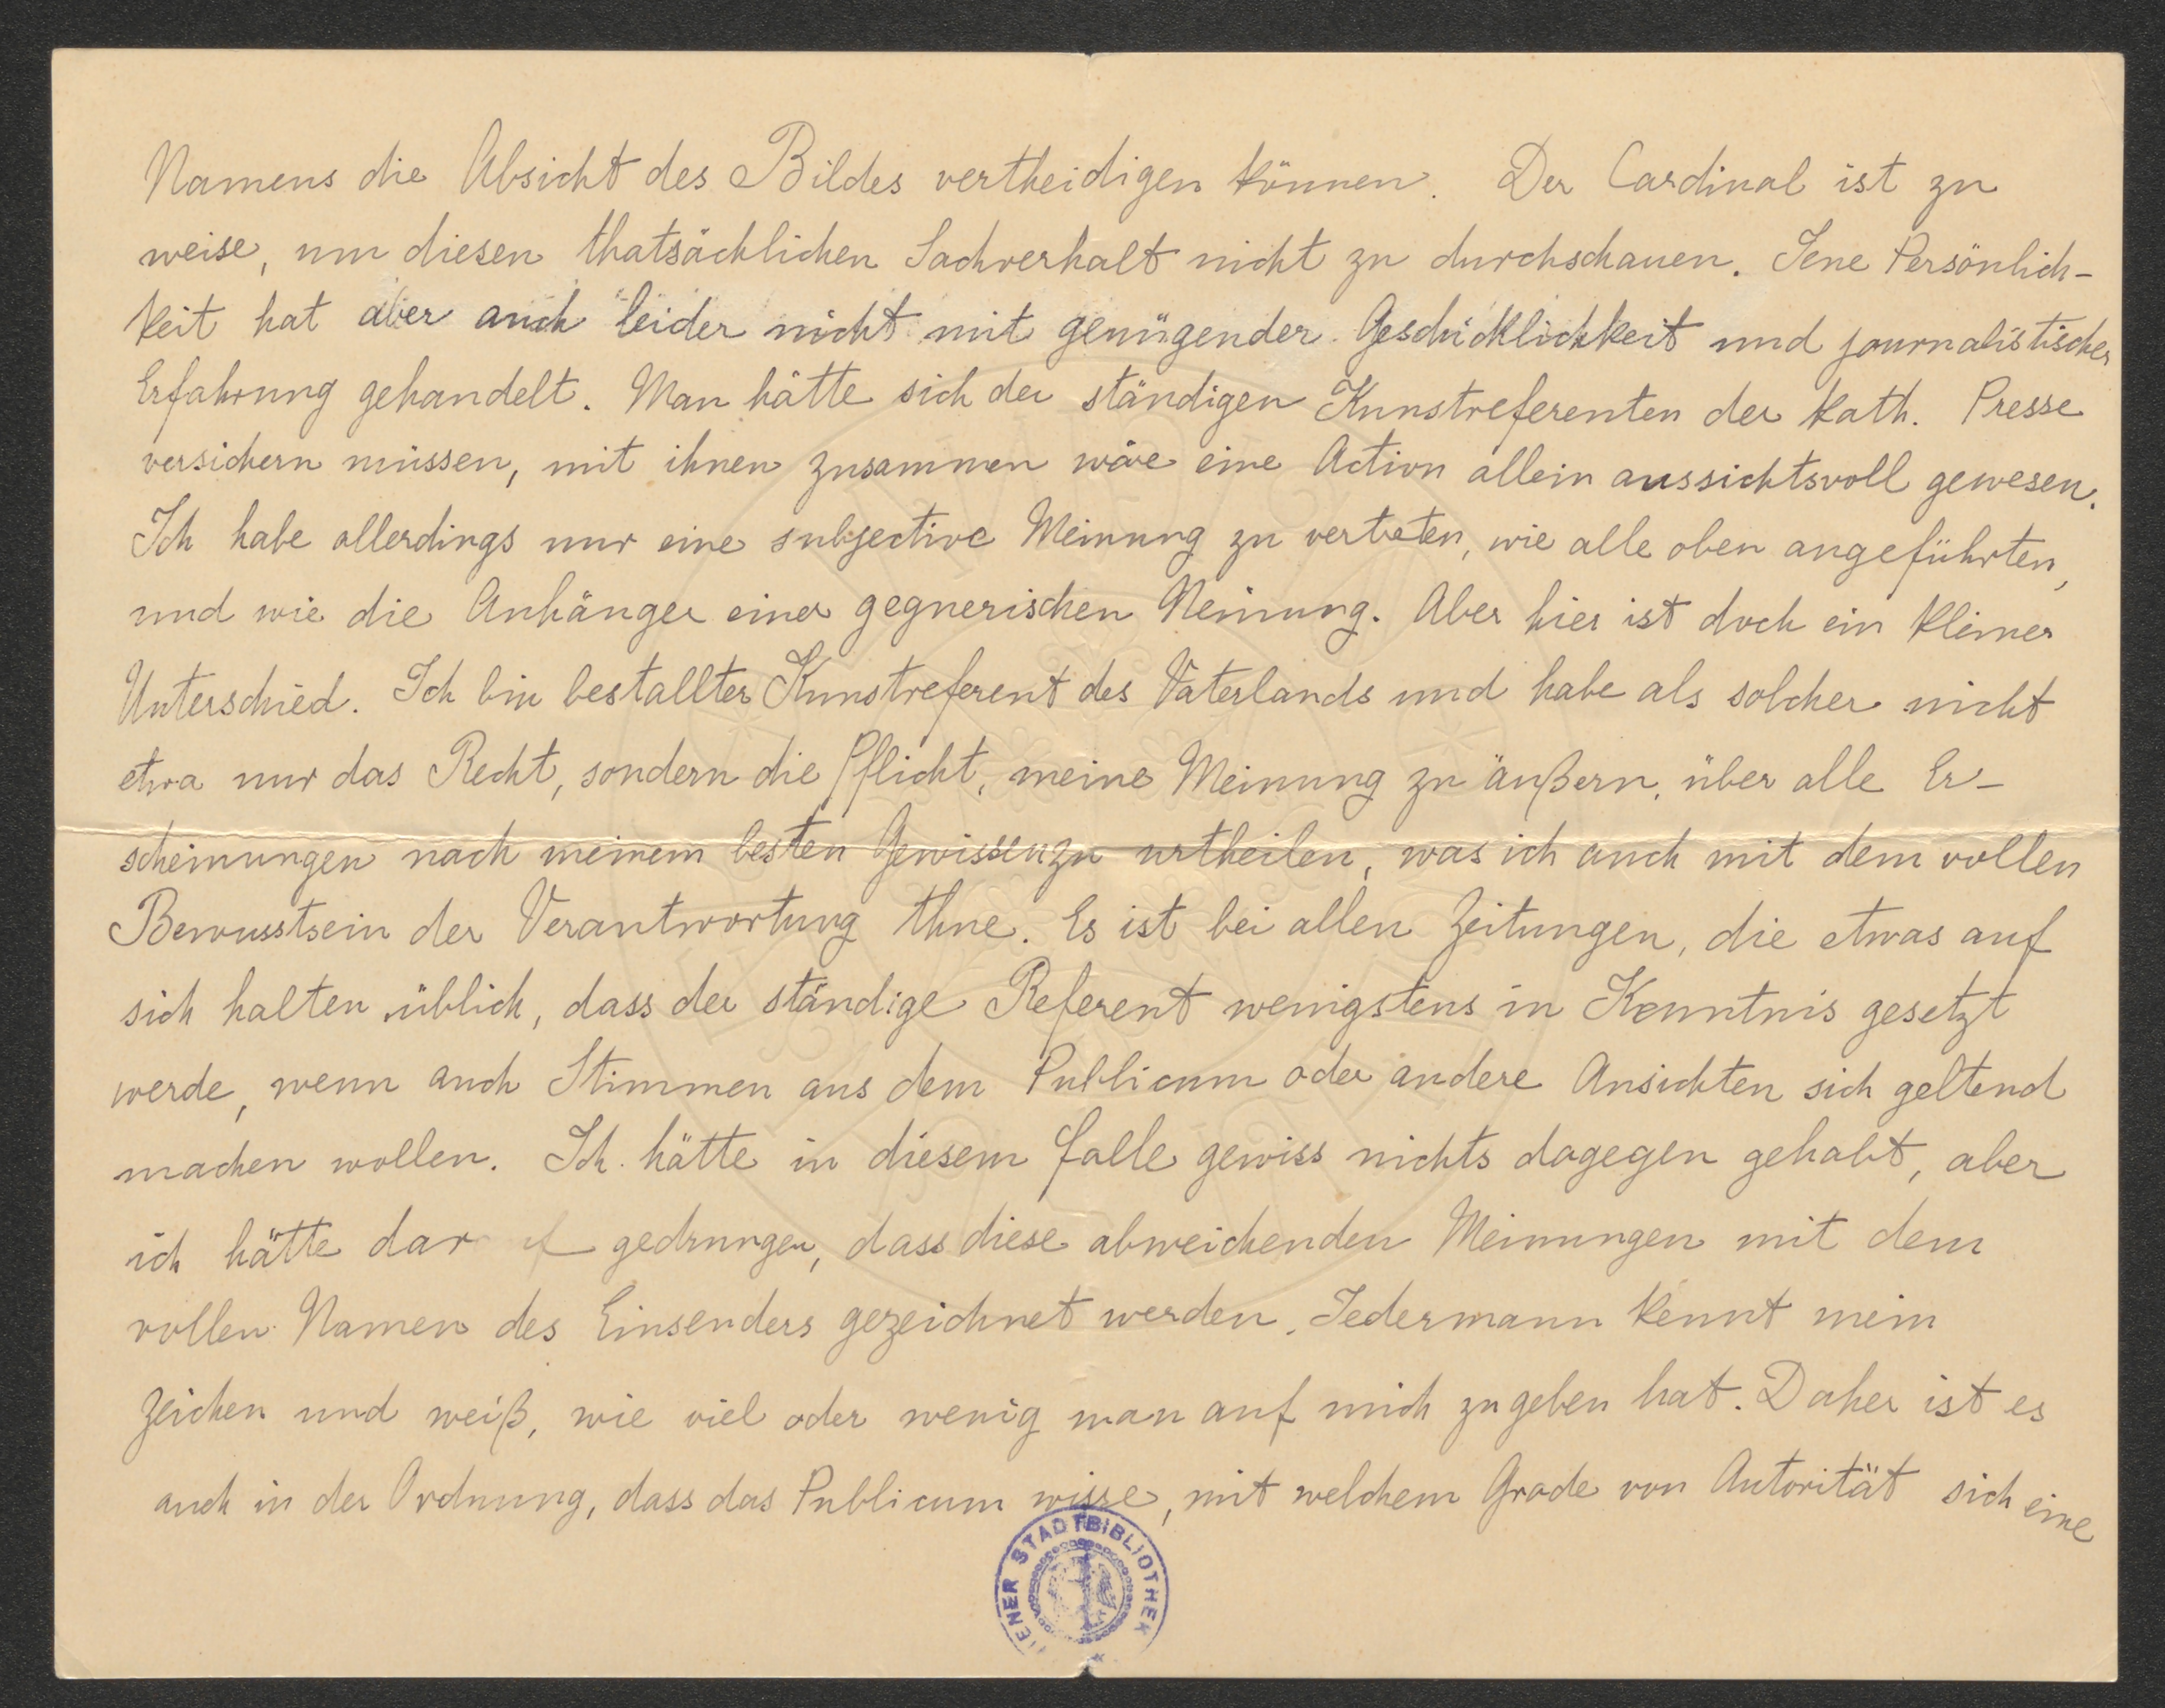 Namens die Absicht des Bildes vertheidigen können. Der Cardinal ist zu
weise, um diesen thatsächlichen Sachverhalt nicht zu durchschauen. Jene Persönlich-
keit hat aber auch leider nicht mit genügender Geschicklichkeit und journalistischer
Erfahrung gehandelt. Man hätte sich der ständigen Kunstreferenten der kath. Presse
versichern müssen, mit ihnen zusammen wäre eine Action allein aussichtsvoll gewesen.
Ich habe allerdings nur eine subjective Meinung zu vertreten, wie alle oben angeführten,
und wie die Anhänger einer gegnerischen Meinung. Aber hier ist doch ein kleiner
Unterschied. Ich bin bestallter Kunstreferent des Vaterlands und habe als solcher nicht
etwa nur das Recht, sondern die Pflicht, meine Meinung zu äußern, über alle Er-
scheinungen nach meinem besten Gewissen zu urtheilen, was ich auch mit dem vollen
Bewusstsein der Verantwortung thue. Es ist bei allen Zeitungen, die etwas auf
sich halten üblich, dass der ständige Referent wenigstens in Kenntnis gesetzt
werde, wenn auch Stimmen aus dem Publicum oder andere Ansichten sich geltend
machen wollen. Ich hätte in diesem Falle gewiss nichts dagegen gehabt, aber
ich hätte dar f gedrungen, dass diese abweichenden Meinungen mit dem
vollen Namen des Einsenders gezeichnet werden. Jedermann kennt mein
Zeichen und weiß, wie viel oder wenig man auf mich zu geben hat. Daher ist es
auch in der Ordnung, dass das Publicum wisse, mit welchem Grade von Autorität sich eine
WIENER STADTBIBLIOTHEK